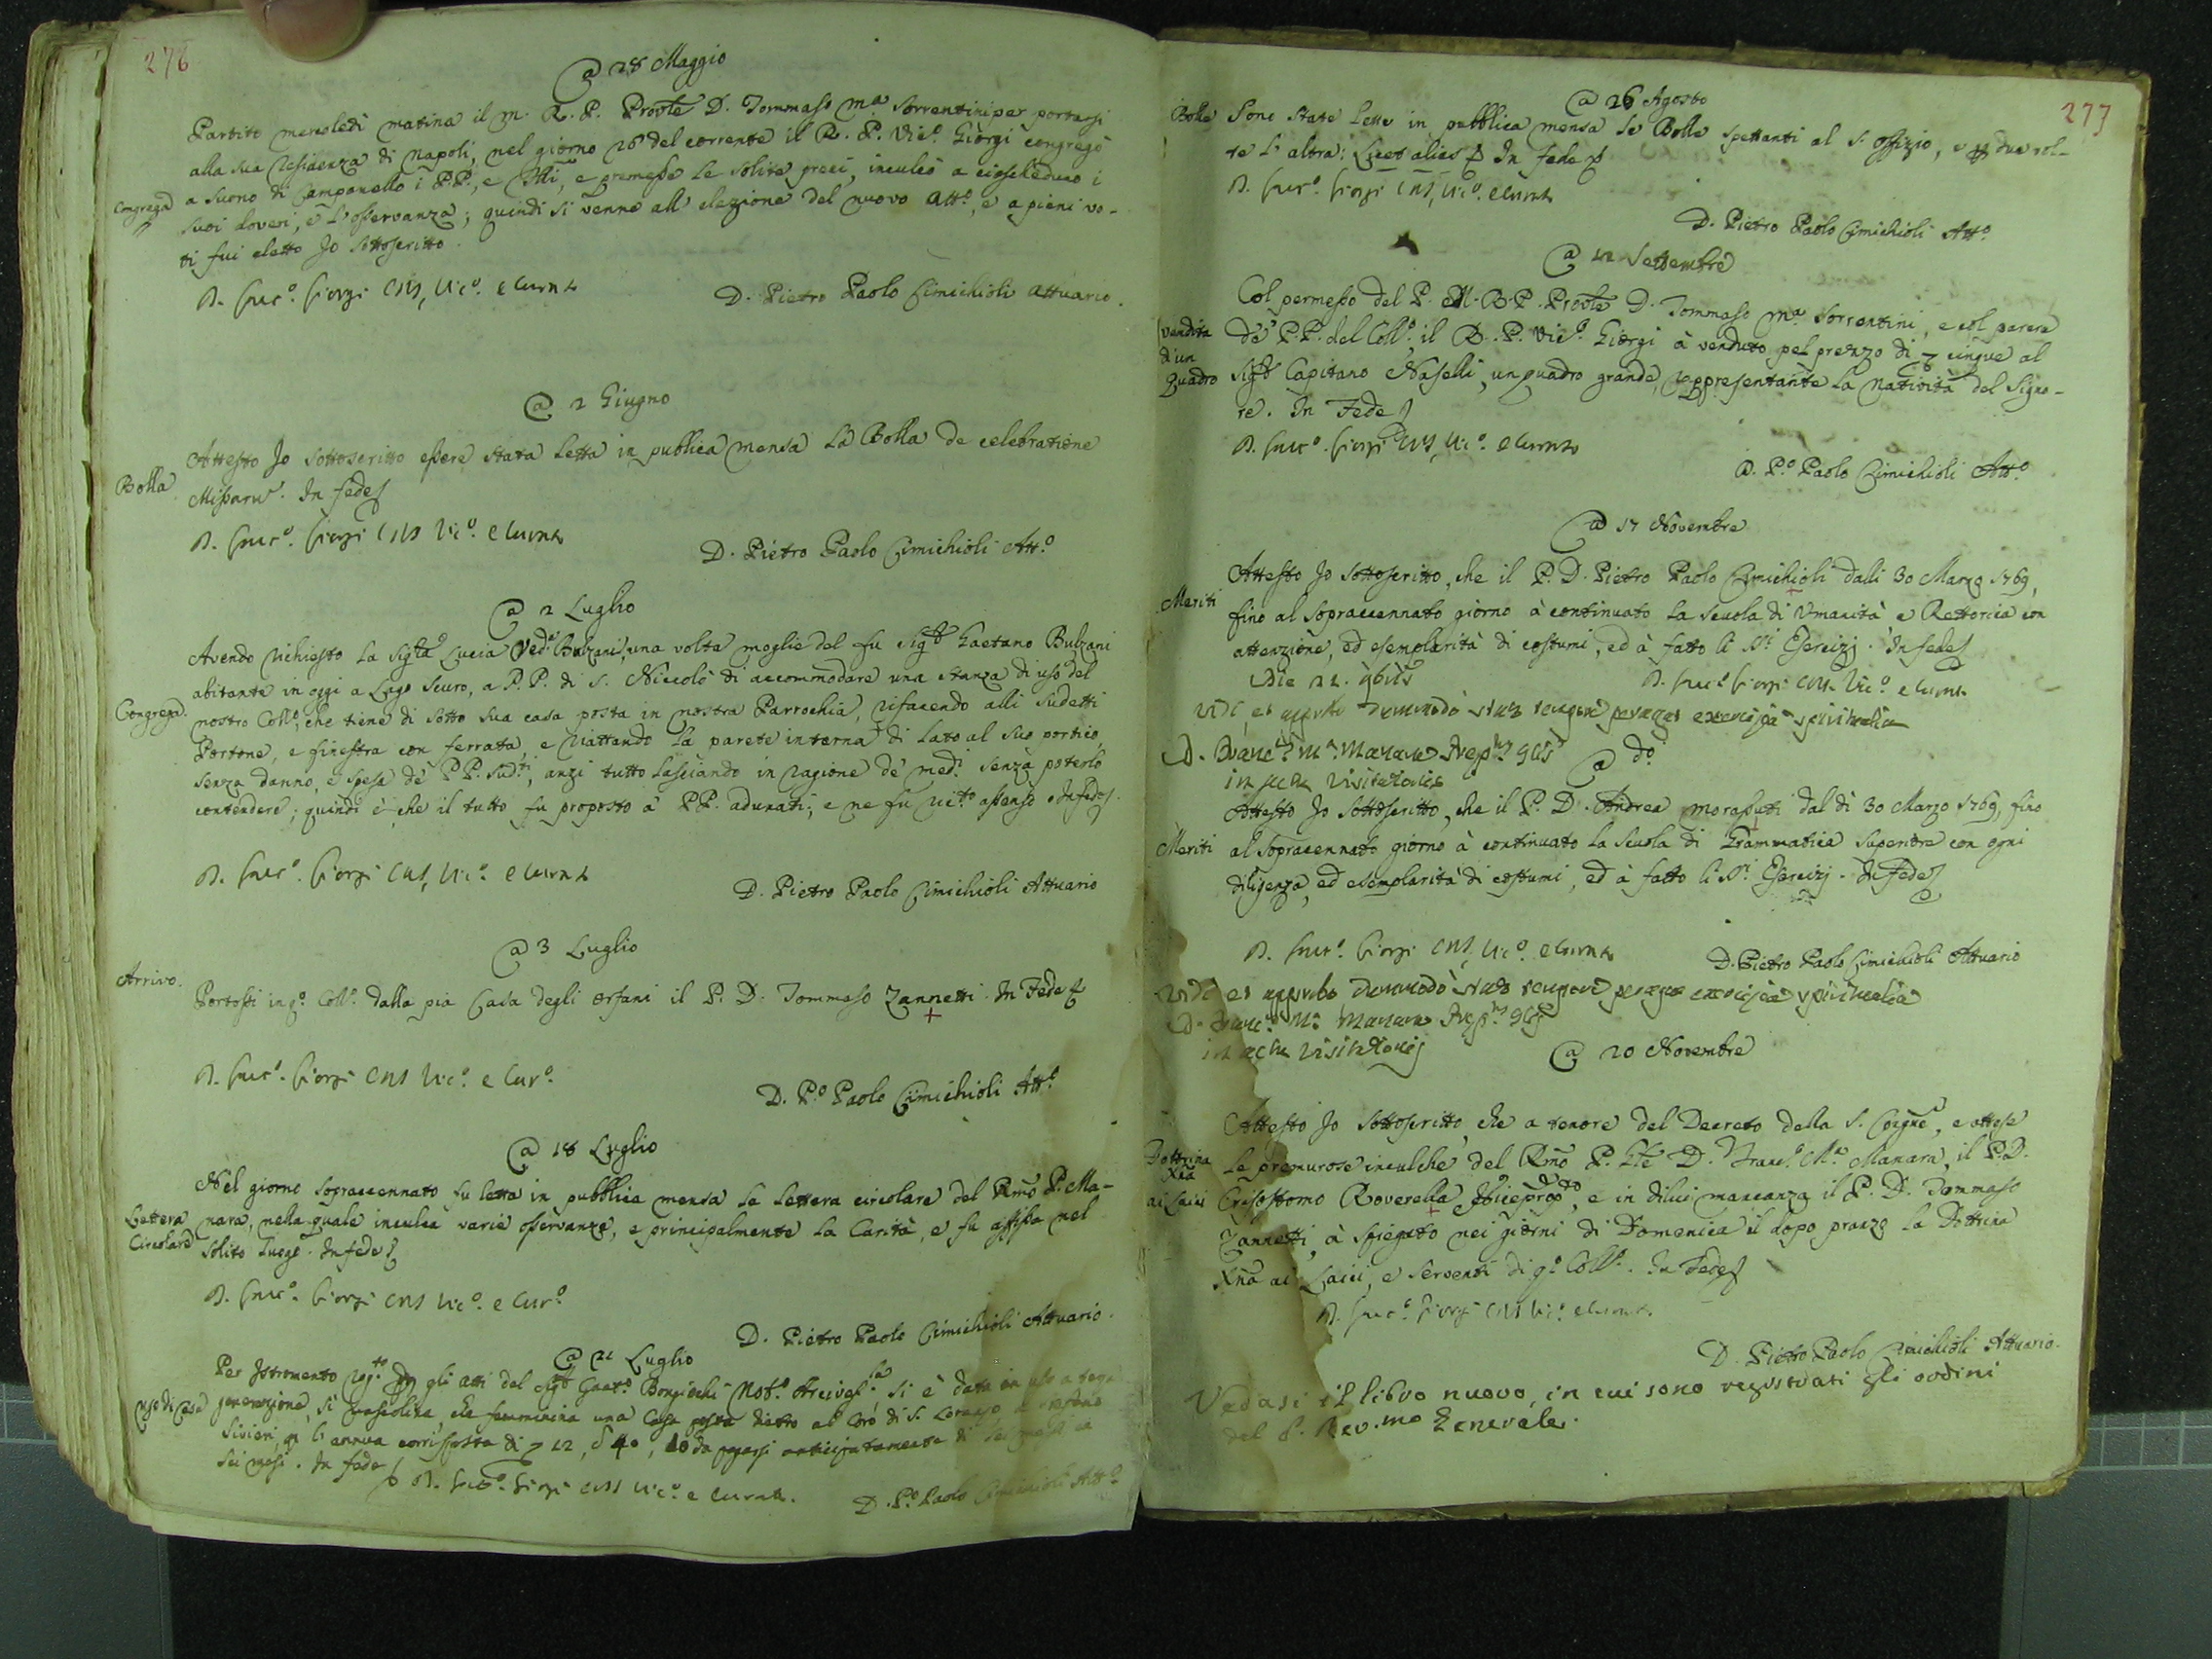 276
@ 28 Maggio
Partito mercoledì matina il m. R. P. Provle D. Tommaso Ma Sorrentini per portarsi
alla sua residenza di Napoli, nel giorno 28 del corrente il R. P. Vico Giorgi congregò
Congrega
a suono di Campanello i PP., e e premesse le solite preci, inculcò a ciascheduno i
suoi doveri, e l'osservanza; quindi si venne all'elezione del nuovo Atto, e a pieni vo-
ti fui eletto Jo sottoscritto.
D. Franco. Giorgi CRS, Vico. e Curato
D. Pietro Paolo Cimichioli Attuario.
@ 2 Giugno
Bolla
Attesto Jo sottoscritto essere stata letta in publica mensa la Bolla de celebratione
Missaru. In fede
D. Franco. Giorgi CRS Vico. e Curato
D. Pietro Paolo Cimichioli Atto
@ 2 Luglio
Avendo richiesto la Sigra Lucia Veda Bulzani, una volta moglie del fu Sigr Gaetano Bulzani
abitante in oggi a Lago scuro, a P.P. di S. Niccolò di accommodare una stanza di uso del
Congrega.
nostro Collo, che tiene di sotto sua casa posta in nostra Parrochia, rifacendo alli sudetti
Portone, e finestra con ferrata, e riattando la parete interna di lato al suo portico,
senza danno, e spesa de' PP. sudti, anzi tutto lasciando in ragione de' medi senza poterlo
contendere; quindi è che il tutto fu proposto a' PP. adunati, e ne fu assenso. In fede.
D. Franco. Giorgi CRS, Vico. e Curato
D. Pietro Paolo Cimichioli Attuario
@ 3 Luglio
Arrivo.
Portossi in qo. Collo. dalla pia Casa degli orfani il P. D. Tommaso Zannetti. In Fede
D. Franco. Giorgi CRS Vico. e Curo.
D. Po Paolo Cimichioli Atto
@ 18 Luglio
Nel giorno sopraccennato fu letta in pubblica mensa la lettera circolare del Rmo P. Ma-
Lettera Circolare
nara, nella quale inculca varie osservanze, e principalmente la Carità, e fu affissa nel
solito luogo. In fede
D. Franco. Giorgi CRS Vico. e Curo
D. Pietro Paolo Cimichioli Attuario.
@ 21 Luglio
Per Istromento rogto gli atti del Sigr Gaeto Notro Arcivesle si è data in uso a terza
Uso di Casa
generazione, sì mascolina, che femminina una Casa posta dietro al Coro di S. Lorenzo a
l'annua corrisposta di 12, 40, 10 da pagarsi anticipatamente di sei mesi in
sei mesi. In fede
D. Franco. Giorgi CRS Vico. e Curato.
D. Po Paolo Cimichioli Atto
277
@ 26 Agosto
Bolle
Sono state lette in pubblica mensa le Bolle spettanti al S. Offizio, e due vol-
te l'altra: Licet alias In fede
D. Franco. Giorgi CRS, Vico. e Curato
D. Pietro Paolo Cimichioli Atto
@ 12 Settembre
Col permesso del P. M. R. P. Provle D. Tommaso Ma Sorrentini, e col parere
Vendita d'un Quadro
de' P.P. del Collo, il R. P. Vico Giorgi à venduto pel prezzo di cinque al
Sigr Capitano Naselli, un quadro grande, rappresentante la Natività del Signo-
re. In Fede
D. Franco. Giorgi CRS, Vico. e Curato
D. Po Paolo Cimichioli Atto
@ 17 Novembre
Attesto Jo sottoscritto, che il P. D. Pietro Paolo Cimichioli dalli 30 Marzo 1769,
Meriti
fino al sopraccennato giorno à continuato la scuola di Umanità e Rettorica con
attenzione, ed esemplarità di costumi, ed à fatto li Sti Esercizj. In fede
Die 22. 9bris
D. Franco Giorgi CRS. Vico. e Curato
vidi, et approbo dummodo suo tempore peragat exercitia spiritualia
D. Franc. Ma. Manara Prep. Glis
in actu Visitationis
@ do
Attesto Jo sottoscritto, che il P. D. Andrea Morassuti dal dì 30 Marzo 1769, fino
Meriti
al sopracennato giorno à continuato la scuola di Grammatica superiore con ogni
diligenza, ed esemplarità di costumi, ed à fatto li Sti Esercizj. In Fede
D. Franco. Giorgi CRS, Vico. e Curato
D. Pietro Paolo Cimichioli Attuario
Vidi et approbo dummodo suo tempore peragat exercitia spiritualia
D. Franc. Ma. Manara Prep. Glis
in actu Visitationis
@ 20 Novembre
Attesto Jo sottoscritto, che a tenore del Decreto della S. Congne, e attese
Dottrina Xna ai Laici
le premurose inculche del Rmo P. Gle D. Franco. Ma. Manara, il P. D.
Crisostomo Roverella e in di lui mancanza il P. D. Tommaso
Zannetti, à spiegato nei giorni di Domenica il dopo pranzo la Dottrina
Xna ai Laici, e serventi di qo. Collo. In Fede
D. Franco. Giorgi CRS Vico. e Curato.
D. Pietro Paolo Cimichioli Attuario.
Vedasi il libro nuovo, in cui sono registrati gli ordini
del P. Rev.mo Generale.